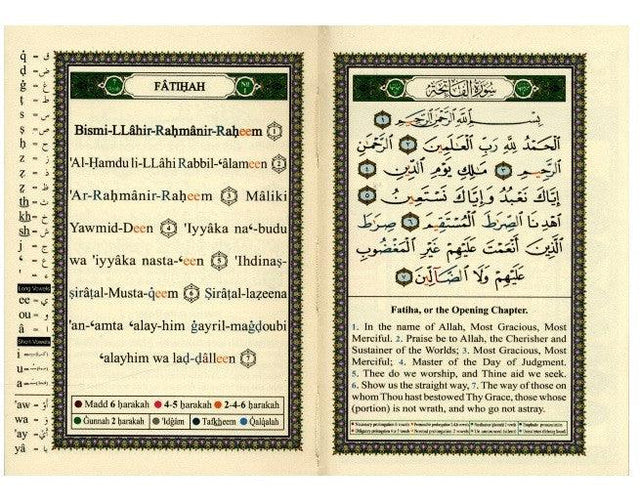 ق - q̇
ض - ḍ
غ - ġ
ط - ṭ
س - s
ص - ṣ
ح - ḥ
ز - z
ظ - ẓ
ذ - z
ث - th
خ - kh
ش - sh
ج - j
ع - ʻ
ء - '
Long Vowels
ee
ou
â
Short Vowels
i
u
a
'aw - أَوْ
wa - وَ
'ay - أَيْ
yâ - يَا
FÂTIḤAH
Bismi-LLâhir-Raḥmânir-Raḥeem 1
'Al-Ḥamdu li-LLâhi Rabbil-ʻâlameen 2
'Ar-Raḥmânir-Raḥeem 3 Mâliki
Yawmid-Deen 4 'Iyyâka naʻ-budu
wa 'iyyâka nasta-ʻeen 5 'Ihdinaṣ-
ṣirâṭal-Musta-q̇eem 6 Ṣirâṭal-lazeena
'an-ʻamta ʻalay-him ġayril-maġḍoubi
ʻalayhim wa laḍ-ḍâlleen 7
Madd 6 ḥarakah 4-5 ḥarakah 2-4-6 ḥarakah
Ġunnah 2 ḥarakah 'Idġâm Tafkheem Q̇alq̇alah
سُورَةُ الفَاتِحَةِ
بِسْمِ اللَّهِ الرَّحْمَٰنِ الرَّحِيمِ ١
الْحَمْدُ لِلَّهِ رَبِّ الْعَالَمِينَ ٢ الرَّحْمَٰنِ
الرَّحِيمِ ٣ مَالِكِ يَوْمِ الدِّينِ ٤
إِيَّاكَ نَعْبُدُ وَإِيَّاكَ نَسْتَعِينُ ٥
اهْدِنَا الصِّرَاطَ الْمُسْتَقِيمَ ٦ صِرَاطَ
الَّذِينَ أَنْعَمْتَ عَلَيْهِمْ غَيْرِ الْمَغْضُوبِ
عَلَيْهِمْ وَلَا الضَّالِّينَ ٧
Fatiha, or the Opening Chapter.
1. In the name of Allah, Most Gracious, Most
Merciful. 2. Praise be to Allah, the Cherisher and
Sustainer of the Worlds; 3. Most Gracious, Most
Merciful; 4. Master of the Day of Judgment.
5. Thee do we worship, and Thine aid we seek.
6. Show us the straight way, 7. The way of those on
whom Thou hast bestowed Thy Grace, those whose
(portion) is not wrath, and who go not astray.